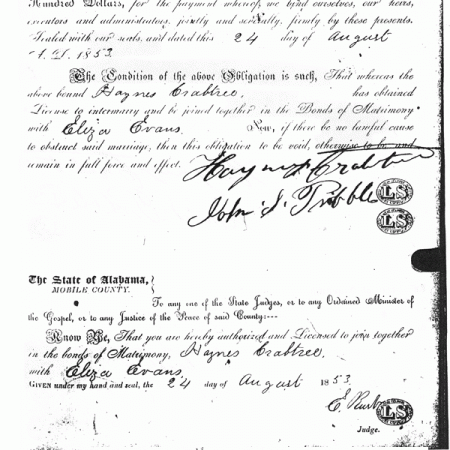 Hundred Dollars, for the payment whereof, we bind ourselves, our heirs,
executors and administrators, jointly and severally, firmly by these presents.
Sealed with our seals, and dated this 24 day of August
A.D. 1853.
The Condition of the above Obligation is such, That whereas the
above bound Haynes Crabtree, has obtained
License to intermarry and be joined together in the Bonds of Matrimony
with Eliza Evans. Now, if there be no lawful cause
to obstruct said marriage, then this obligation to be void, otherwise to be and
remain in full force and effect.
Haynes Crabtree
LS
John J. Pribble
LS
The State of Alabama,
MOBILE COUNTY.
To any one of the State Judges, or to any Ordained Minister of
the Gospel, or to any Justice of the Peace of said County:---
Know Ye, That you are hereby authorized and Licensed to join together
in the bonds of Matrimony, Haynes Crabtree,
with Eliza Evans,
GIVEN under my hand and seal, the 24 day of August 1853.
E. LS
Judge.